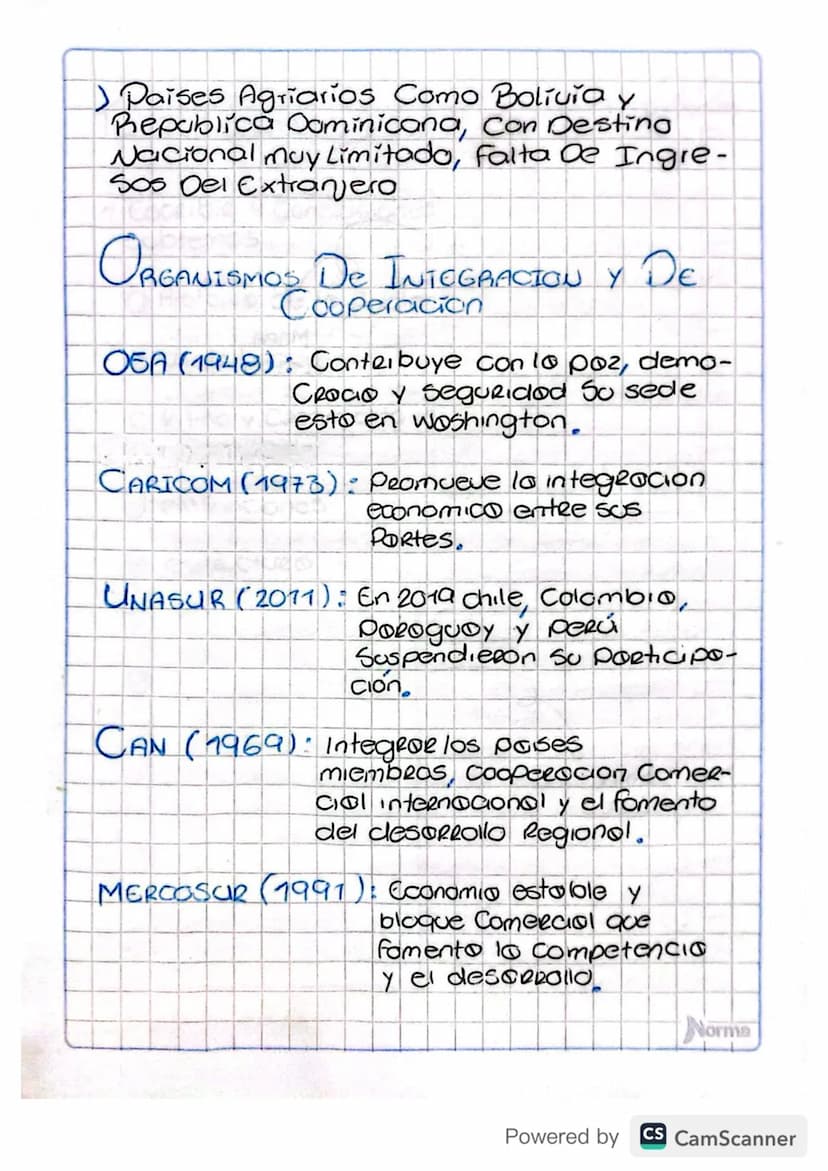 ) Países Agriarios Como Bolivia y
Republica Dominicana, Con Destino
Nacional muy Limitado, Falta De Ingre-
sos Del Extranjero
Organismos De Integracion y De
Cooperacion
OEA (1948): Contribuye con la paz, demo-
cracia y seguridad su sede
esta en Washington.
CARICOM (1973): Promueve la integracion
economica entre sus
Partes.
UNASUR (2011): En 2019 chile, Colombia,
Paraguay y Perú
Suspendieron su participa-
ción.
CAN (1969): Integrar los paises
miembros, cooperacion Comer-
cial internacional y el fomento
del desarrollo Regional.
MERCOSUR (1991): Economia estable y
bloque Comercial que
fomenta la competencia
y el desarrollo.
Norma
Powered by CS CamScanner